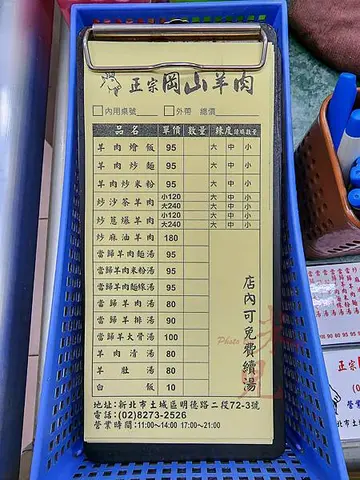 正宗岡山羊肉
□內用桌號 □外帶 總價
品名 單價 數量 辣度請填數量
羊肉燴飯 95 大 中 小
羊肉炒麵 95 大 中 小
羊肉炒米粉 95 大 中 小
炒沙茶羊肉 小120 大 中 小
大240 大 中 小
炒蔥爆羊肉 小120 大 中 小
大240 大 中 小
炒麻油羊肉 180
當歸羊肉麵湯 95
當歸羊肉米粉湯 95
當歸羊肉麵線湯 95
當歸羊肉湯 80
當歸羊排湯 90
當歸羊大骨湯 100
羊肉清湯 80
羊肚湯 80
白飯 10
店內可免費續湯
Photo
地址:新北市土城區明德路二段72-3號
電話:(02)8273-2526
營業時間:11:00~14:00 17:00~21:00